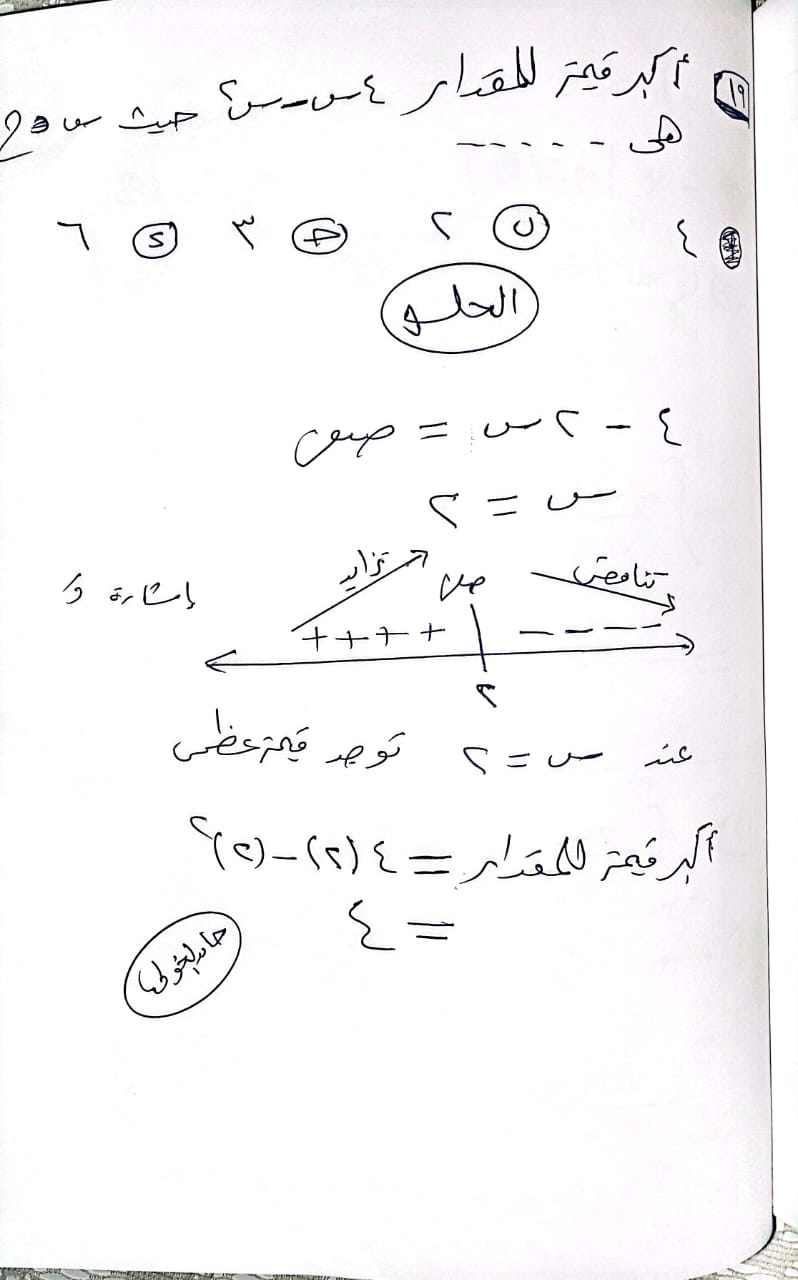 ١٩ أكبر قيمة للمقدار ٤س - س٢ حيث س ∈ ح
هى - - - - -
٤ ب ٢ جـ ٣ د ٦
الحلـــو
٤ - ٢س = صفر
س = ٢
تزايد صفر تناقص
إشارة د َ
+ + + + - - - -
٢
عند س = ٢ توجد قيمة عظمى
أكبر قيمة للمقدار = ٤(٢) - (٢)٢
= ٤